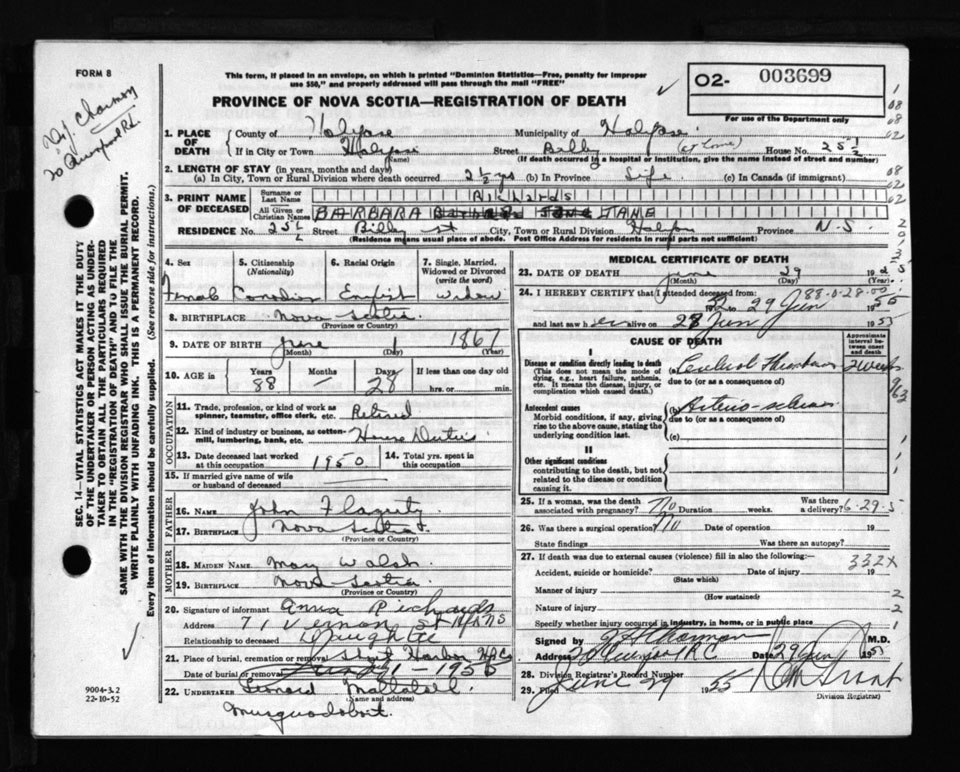 FORM 8
This form, if placed in an envelope, on which is printed "Dominion Statistics—Free, penalty for improper
use $50," and properly addressed will pass through the mail "FREE"
02- 003699
PROVINCE OF NOVA SCOTIA—REGISTRATION OF DEATH
For use of the Department only
1. PLACE OF DEATH
County of Halifax Municipality of Halifax
If in City or Town Halifax Street Bilby (at home) House No. 25½
(Name) (If death occurred in a hospital or institution, give the name instead of street and number)
2. LENGTH OF STAY (in years, months and days)
(a) In City, Town or Rural Division where death occurred 2½ yrs (b) In Province Life (c) In Canada (if immigrant)
3. PRINT NAME OF DECEASED
Surname or Last Name Richards
All Given or Christian Names BARBARA JANE
RESIDENCE No. 25½ Street Bilby st City, Town or Rural Division Halifax Province N.S.
(Residence means usual place of abode. Post Office Address for residents in rural parts not sufficient)
4. Sex 5. Citizenship (Nationality) 6. Racial Origin 7. Single, Married, Widowed or Divorced (write the word)
Female Canadian English Widow
8. BIRTHPLACE Nova Scotia
(Province or Country)
9. DATE OF BIRTH June 1 1867
(Month) (Day) (Year)
10. AGE Years Months Days If less than one day old
88 — 28 hrs. or min.
OCCUPATION
11. Trade, profession, or kind of work as spinner, teamster, office clerk, etc. Retired
12. Kind of industry or business, as cotton-mill, lumbering, bank, etc. House Duties
13. Date deceased last worked at this occupation 1950 14. Total yrs. spent in this occupation
15. If married give name of wife or husband of deceased
FATHER
16. NAME John Flaguty
17. BIRTHPLACE Nova Scotia
(Province or Country)
MOTHER
18. MAIDEN NAME May Walsh
19. BIRTHPLACE Nova Scotia
(Province or Country)
20. Signature of informant Anna Richards
Address 71 Vernon St Hfx NS
Relationship to deceased Daughter
21. Place of burial, cremation or removal Harbor
Date of burial or removal 1955
22. UNDERTAKER Leonard
(Name and address)
Musquodoboit.
MEDICAL CERTIFICATE OF DEATH
23. DATE OF DEATH June 29 1955
(Month) (Day) (Year)
24. I HEREBY CERTIFY that I attended deceased from:
to 29 Jun 1955
and last saw her alive on 28 Jun 1955
88-0-28-00
CAUSE OF DEATH
Approximate interval between onset and death
I
Disease or condition directly leading to death
(This does not mean the mode of dying, e.g., heart failure, asthenia, etc. It means the disease, injury, or complication which caused death.)
(a) Cerebral Thrombosis 2 weeks
due to (or as a consequence of)
Antecedent causes
Morbid conditions, if any, giving rise to the above cause, stating the underlying condition last.
(b) Arterio-sclerosis
due to (or as a consequence of)
(c)
II
Other significant conditions
contributing to the death, but not related to the disease or condition causing it.
25. If a woman, was the death associated with pregnancy? No Duration weeks. Was there a delivery?
6-29-5
26. Was there a surgical operation? No Date of operation 19
State findings Was there an autopsy?
27. If death was due to external causes (violence) fill in also the following:—
332X
Accident, suicide or homicide? Date of injury 19
(State which)
Manner of injury
(How sustained)
Nature of injury
Specify whether injury occurred in industry, in home, or in public place
Signed by M.D.
Address 20 Date 29 Jun 1955
28. Division Registrar's Record Number
29. Filed June 29 1955
Division Registrar)
SEC. 14—VITAL STATISTICS ACT MAKES IT THE DUTY
OF THE UNDERTAKER OR PERSON ACTING AS UNDER-
TAKER TO OBTAIN ALL THE PARTICULARS REQUIRED
IN THE "REGISTRATION OF DEATH" AND TO FILE THE
SAME WITH THE DIVISION REGISTRAR WHO SHALL ISSUE THE BURIAL PERMIT.
WRITE PLAINLY WITH UNFADING INK. THIS IS A PERMANENT RECORD.
Every item of information should be carefully supplied. (See reverse side for instructions.)
9004-3.2
22-10-52